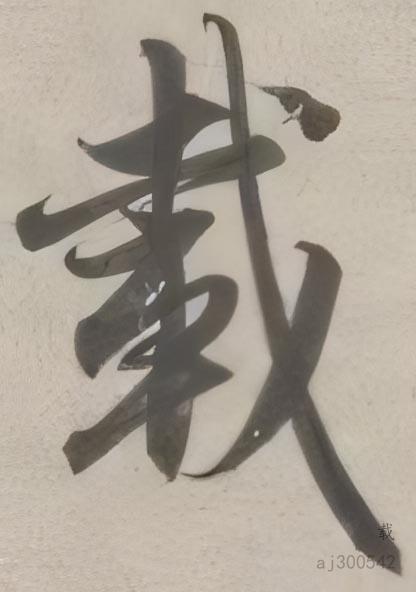 載
载
aj300542